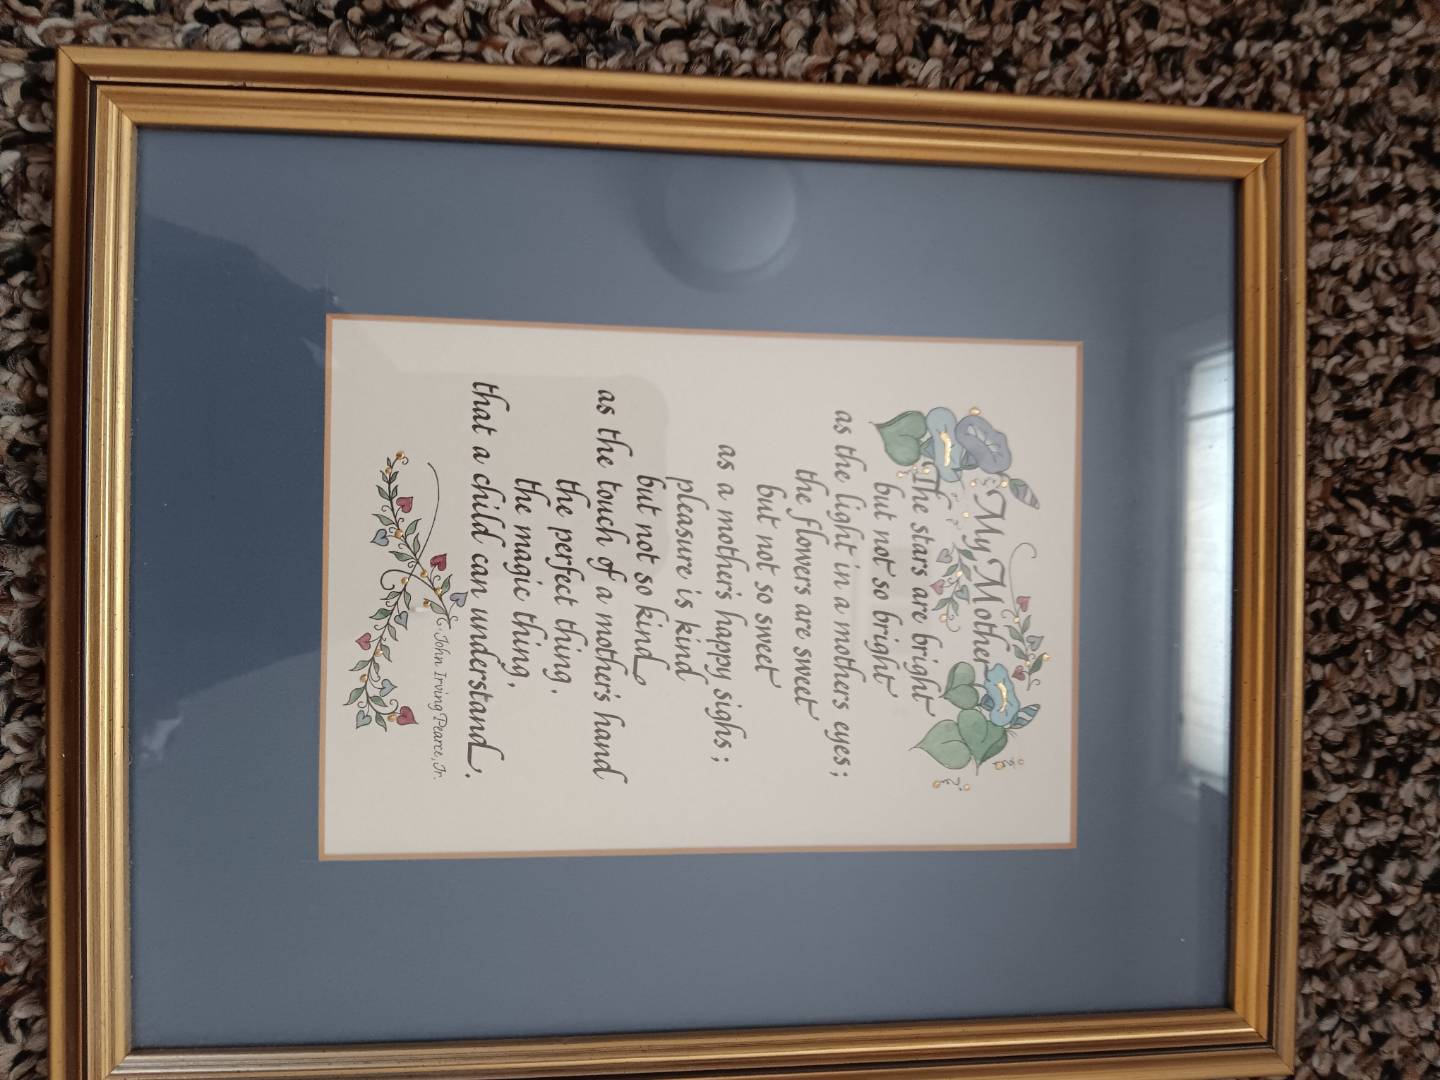 My Mother
The stars are bright
but not so bright
as the light in a mothers eyes;
the flowers are sweet
but not so sweet
as a mother's happy sighs;
pleasure is kind
but not so kind
as the touch of a mother's hand
the perfect thing.
the magic thing,
that a child can understand.
·John Irving Pearce, Jr.